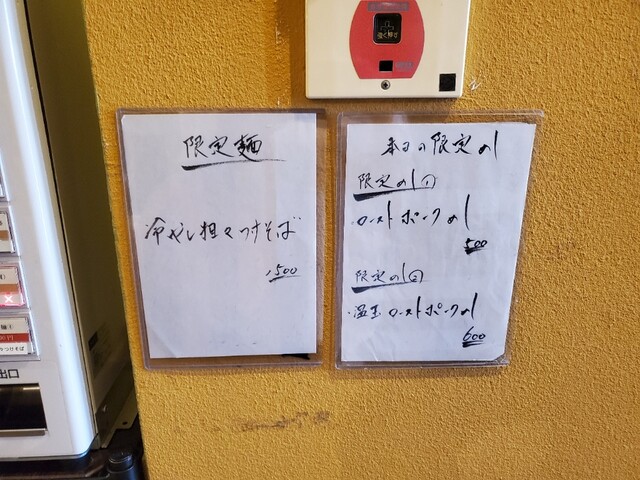 強く押す
限定麺
冷やし担々つけそば
1500
本日の限定めし
限定めし①
・ローストポークめし
500
限定めし②
・温玉ローストポークめし
600
出口
つけそば